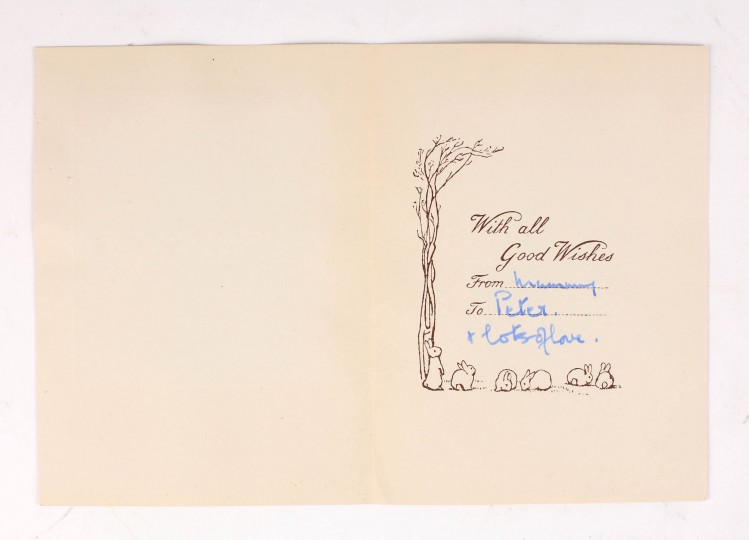 With all
Good Wishes
From mummy
To Peter.
& lots of love.